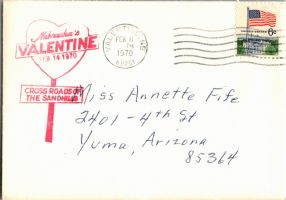 Nebraska's
VALENTINE
FEB 14 1970
CROSS ROADS OF
THE SANDHILLS
VALENTINE, NE
FEB 11
PM
1970
69201
6c
Miss Annette Fife
2401-4th St
Yuma, Arizona
85364